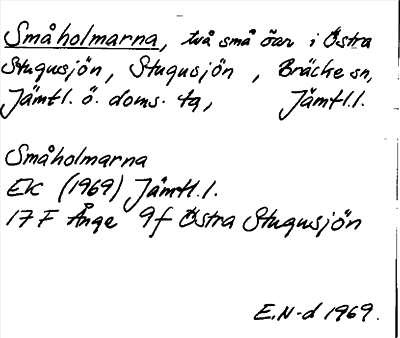 Småholmarna, två små öar i Östra
Stugusjön, Stugusjön, Bräcke sn,
Jämtl. ö. doms. tg, Jämtl.l.
Småholmarna
EK (1969) Jämtl.l.
17 F Ånge 9f Östra Stugusjön
E.N-d 1969.